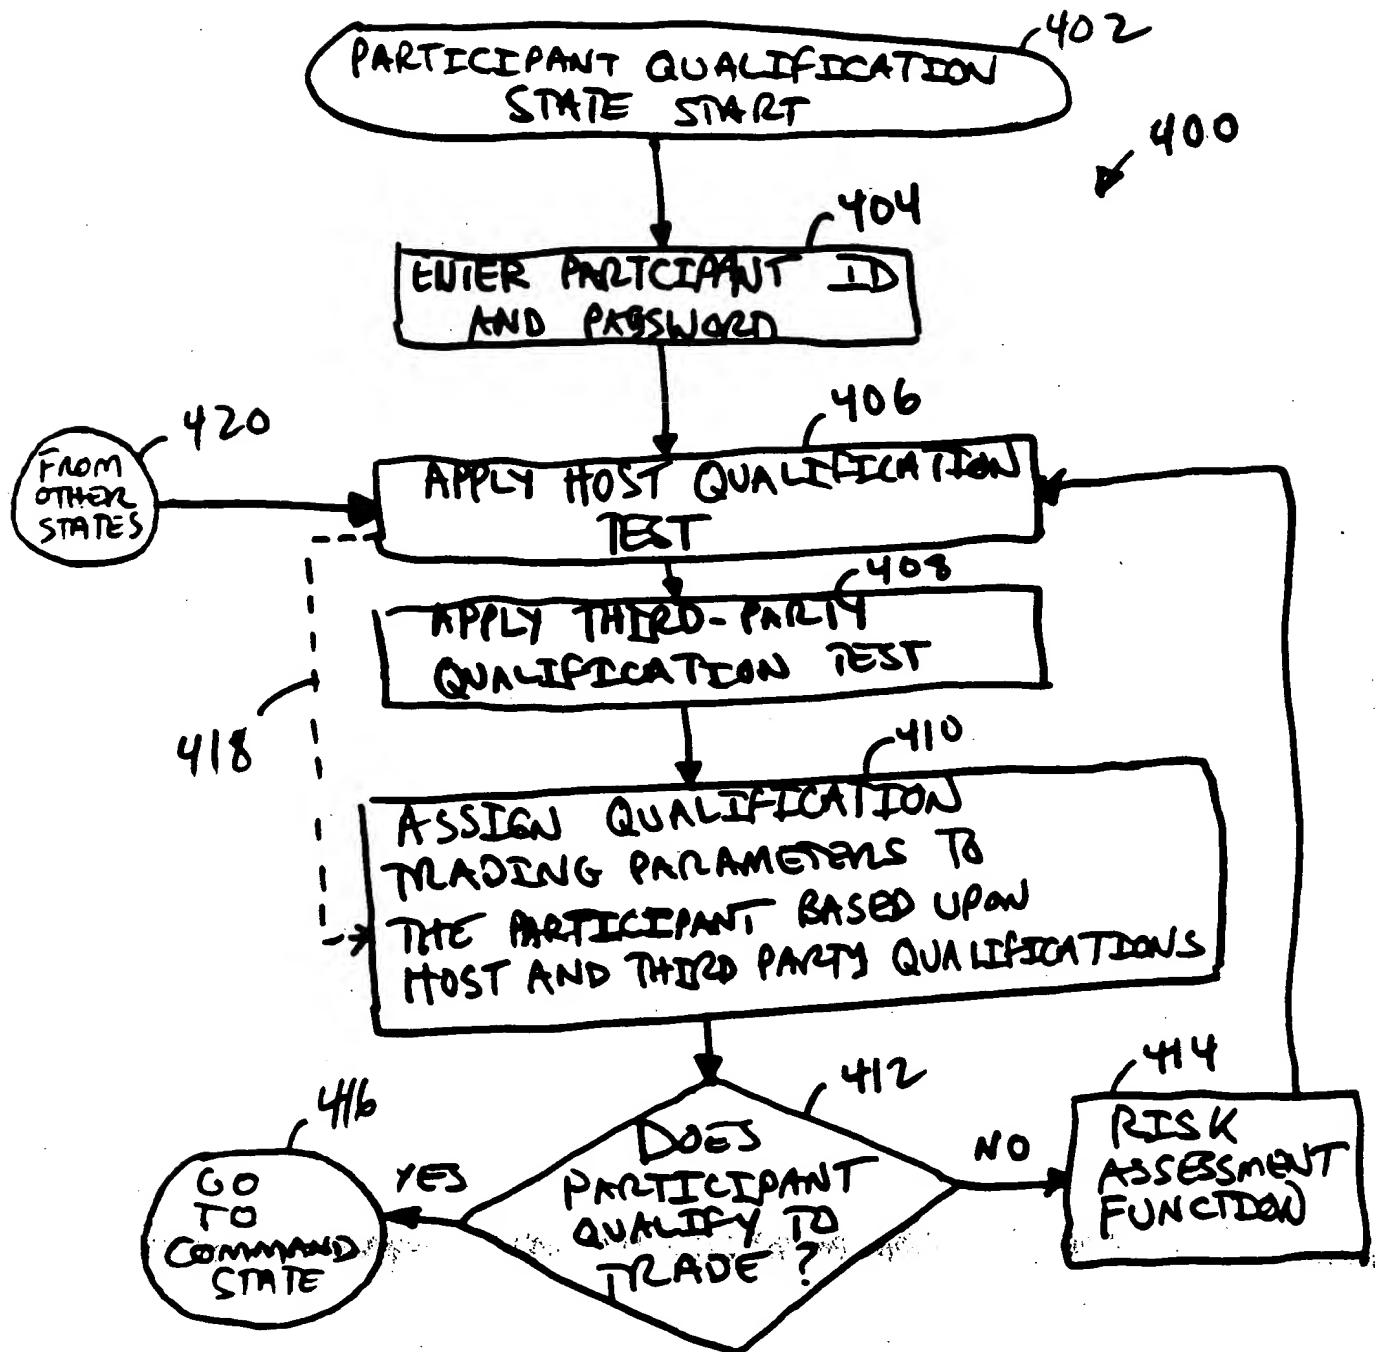 402
PARTICIPANT QUALIFICATION
STATE START
400
404
ENTER PARTCIPANT ID
AND PASSWORD
406
420
FROM
OTHER
STATES
APPLY HOST QUALIFICATION
TEST
408
APPLY THIRD-PARTY
QUALIFICATION TEST
418
410
ASSIGN QUALIFICATION
TRADING PARAMETERS TO
THE PARTICIPANT BASED UPON
HOST AND THIRD PARTY QUALIFICATIONS
412
414
416
GO
TO
COMMAND
STATE
YES
DOES
PARTICIPANT
QUALIFY TO
TRADE?
NO
RISK
ASSESSMENT
FUNCTION